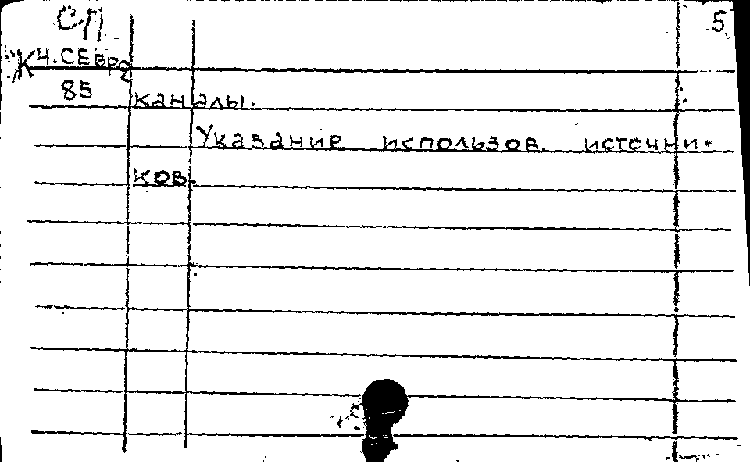 СП
5
"К Ч. СЕВРО
85
каналы.
Указание использов. источни-
ков.